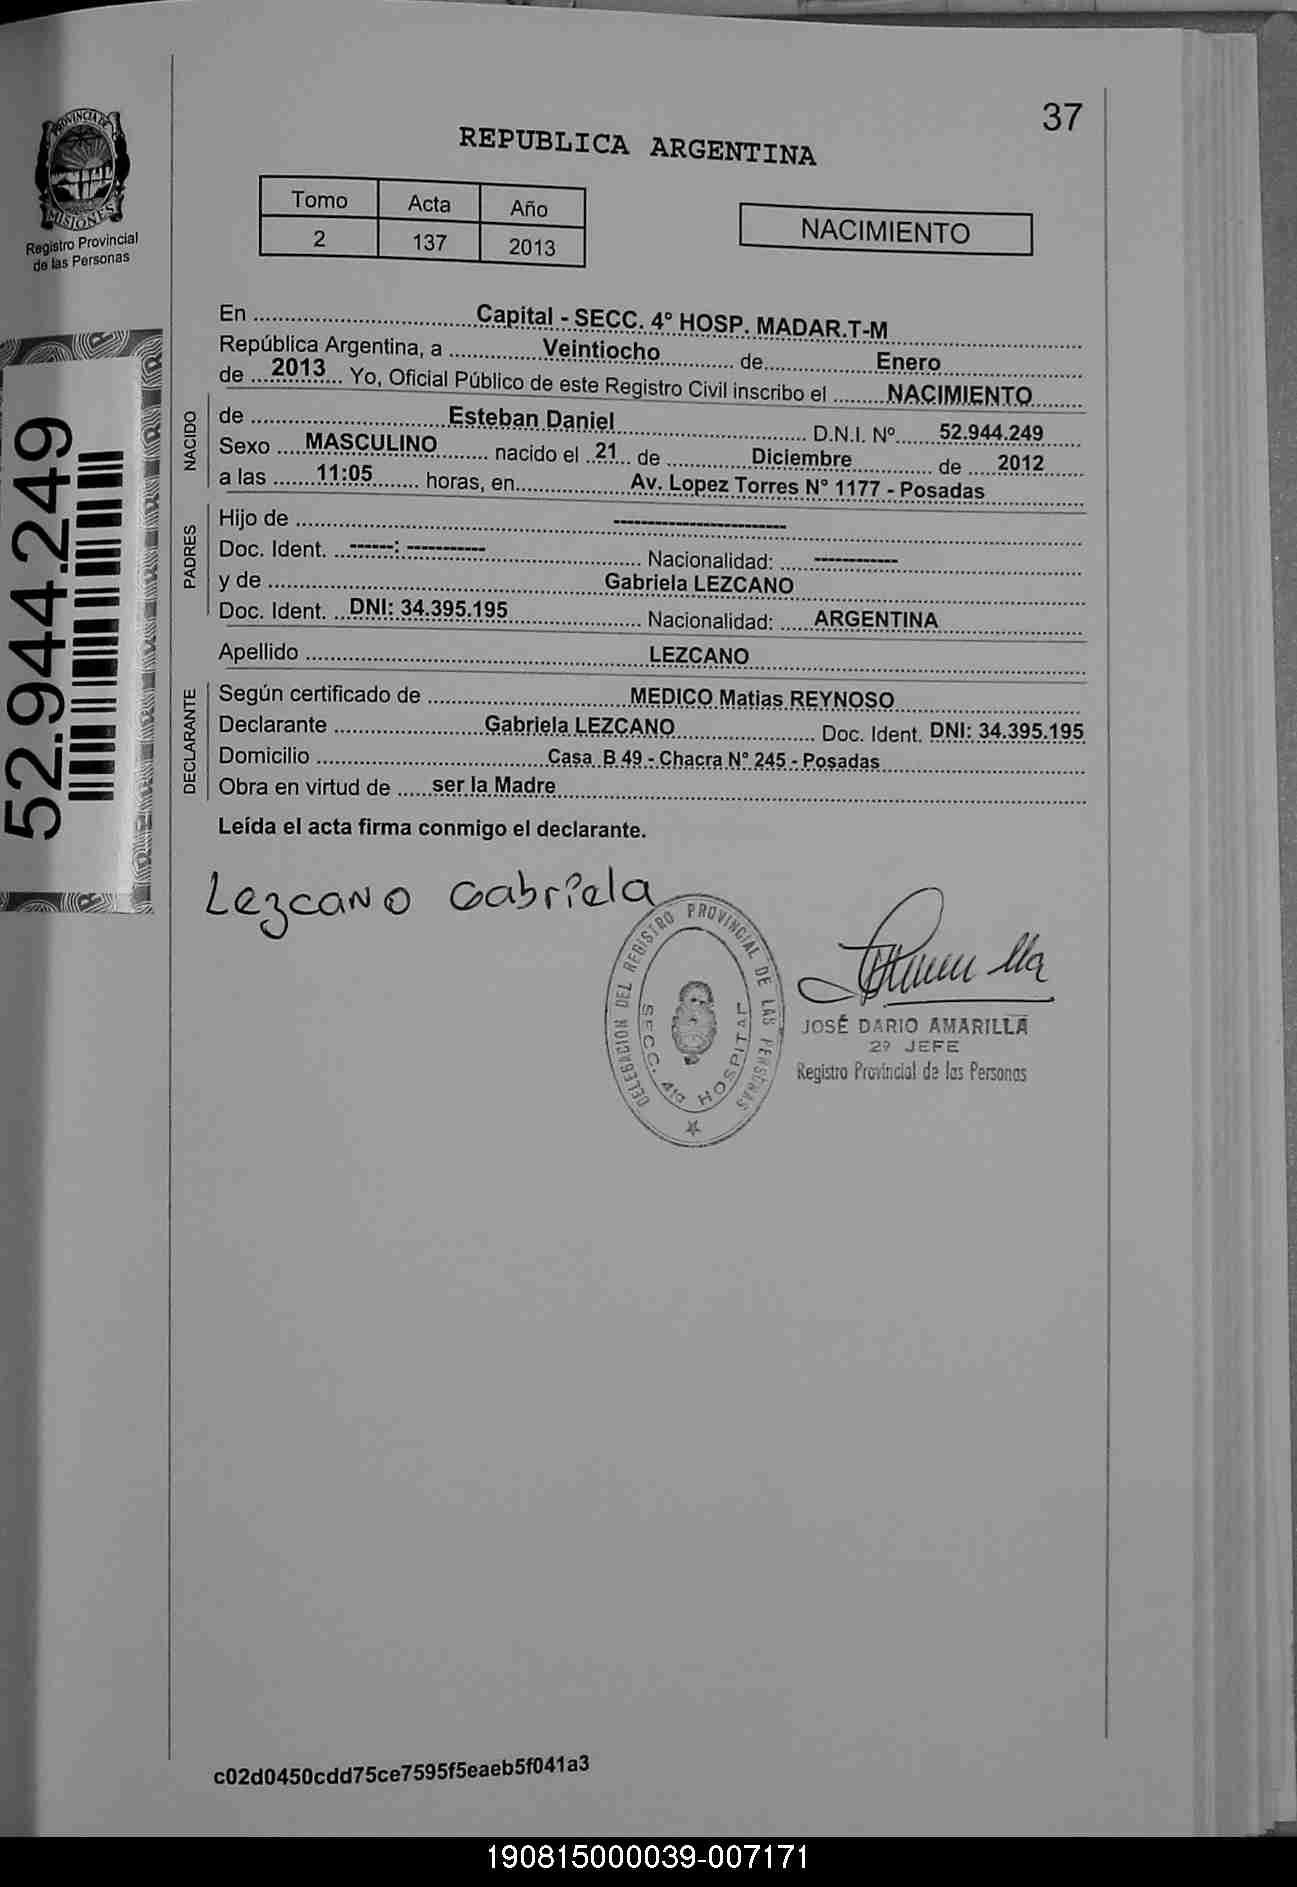 37
REPUBLICA ARGENTINA
PROVINCIA DE
MISIONES
Registro Provincial
de las Personas
Tomo Acta Año
2 137 2013
NACIMIENTO
52.944.249
En Capital - SECC. 4° HOSP. MADAR.T-M
República Argentina, a Veintiocho de Enero
de 2013 Yo, Oficial Público de este Registro Civil inscribo el NACIMIENTO
NACIDO
de Esteban Daniel D.N.I. Nº 52.944.249
Sexo MASCULINO nacido el 21 de Diciembre de 2012
a las 11:05 horas, en Av. Lopez Torres N° 1177 - Posadas
PADRES
Hijo de -------------------------
Doc. Ident. ------: ----------- Nacionalidad: ------------
y de Gabriela LEZCANO
Doc. Ident. DNI: 34.395.195 Nacionalidad: ARGENTINA
Apellido LEZCANO
DECLARANTE
Según certificado de MEDICO Matias REYNOSO
Declarante Gabriela LEZCANO Doc. Ident. DNI: 34.395.195
Domicilio Casa B 49 - Chacra N° 245 - Posadas
Obra en virtud de ser la Madre
Leída el acta firma conmigo el declarante.
Lezcano Gabriela
DELEGACION DEL REGISTRO PROVINCIAL DE LAS PERSONAS
SECC. 4ta HOSPITAL
JOSÉ DARIO AMARILLA
2º JEFE
Registro Provincial de las Personas
c02d0450cdd75ce7595f5eaeb5f041a3
190815000039-007171